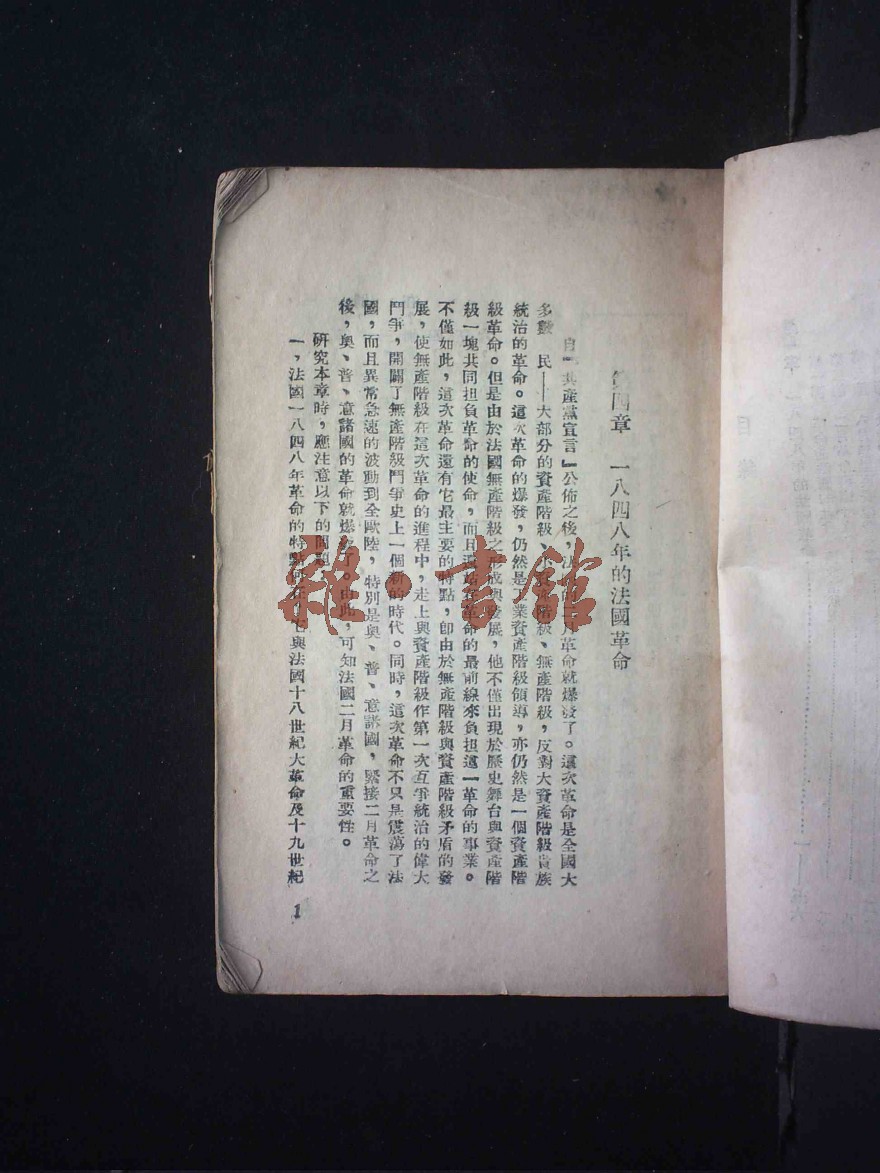 第四章　一八四八年的法國革命
自『共產黨宣言』公佈之後，法的二月革命就爆發了。這次革命是全國大
多數　民——大部分的資產階級、小資產階級、無產階級，反對大資產階級貴族
統治的革命。這次革命的爆發，仍然是工業資產階級領導，亦仍然是一個資產階
級革命。但是由於法國無產階級之形成與發展，他不僅出現於歷史舞台與資產階
級一塊共同担負革命的使命，而且還站在革命的最前線來負担這一革命的事業。
不僅如此，這次革命還有它最主要的特點，卽由於無產階級與資產階級矛盾的發
展，使無產階級在這次革命的進程中，走上與資產階級作第一次互爭統治的偉大
鬥爭，開闢了無產階級鬥爭史上一個新的時代。同時，這次革命不只是震蕩了法
國，而且異常急速的波動到全歐陸，特別是奧、普、意諸國，緊接二月革命之
後，奧、普、意諸國的革命就爆發了。由此，可知法國二月革命的重要性。
研究本章時，應注意以下的問題
一，法國一八四八年革命的特點何在，它與法國十八世紀大革命及十九世紀
1
雜·書館
目